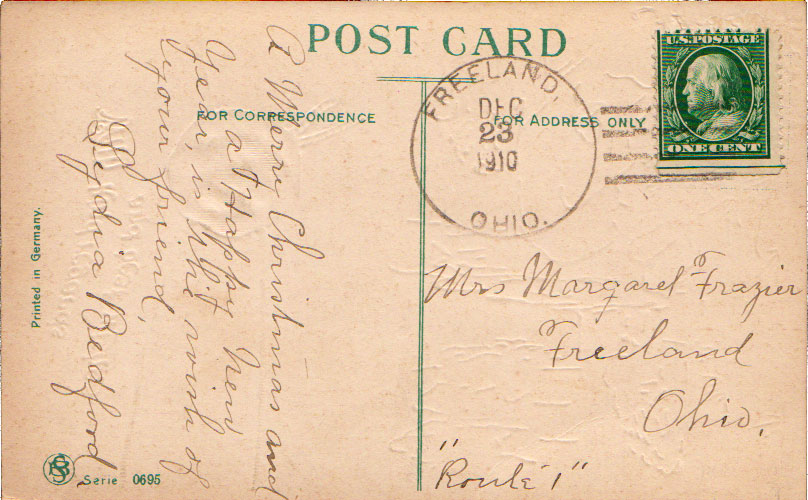 POST CARD
FOR CORRESPONDENCE
FOR ADDRESS ONLY
FREELAND,
DEC
23
1910
OHIO.
U.S. POSTAGE
ONE CENT
A Merry Christmas and
a Happy New
Year, is the wish of
your friend,
Lydia Bedford
Mrs Margaret Frazier
Freeland
Ohio,
"Route 1"
Printed in Germany.
Serie 0695